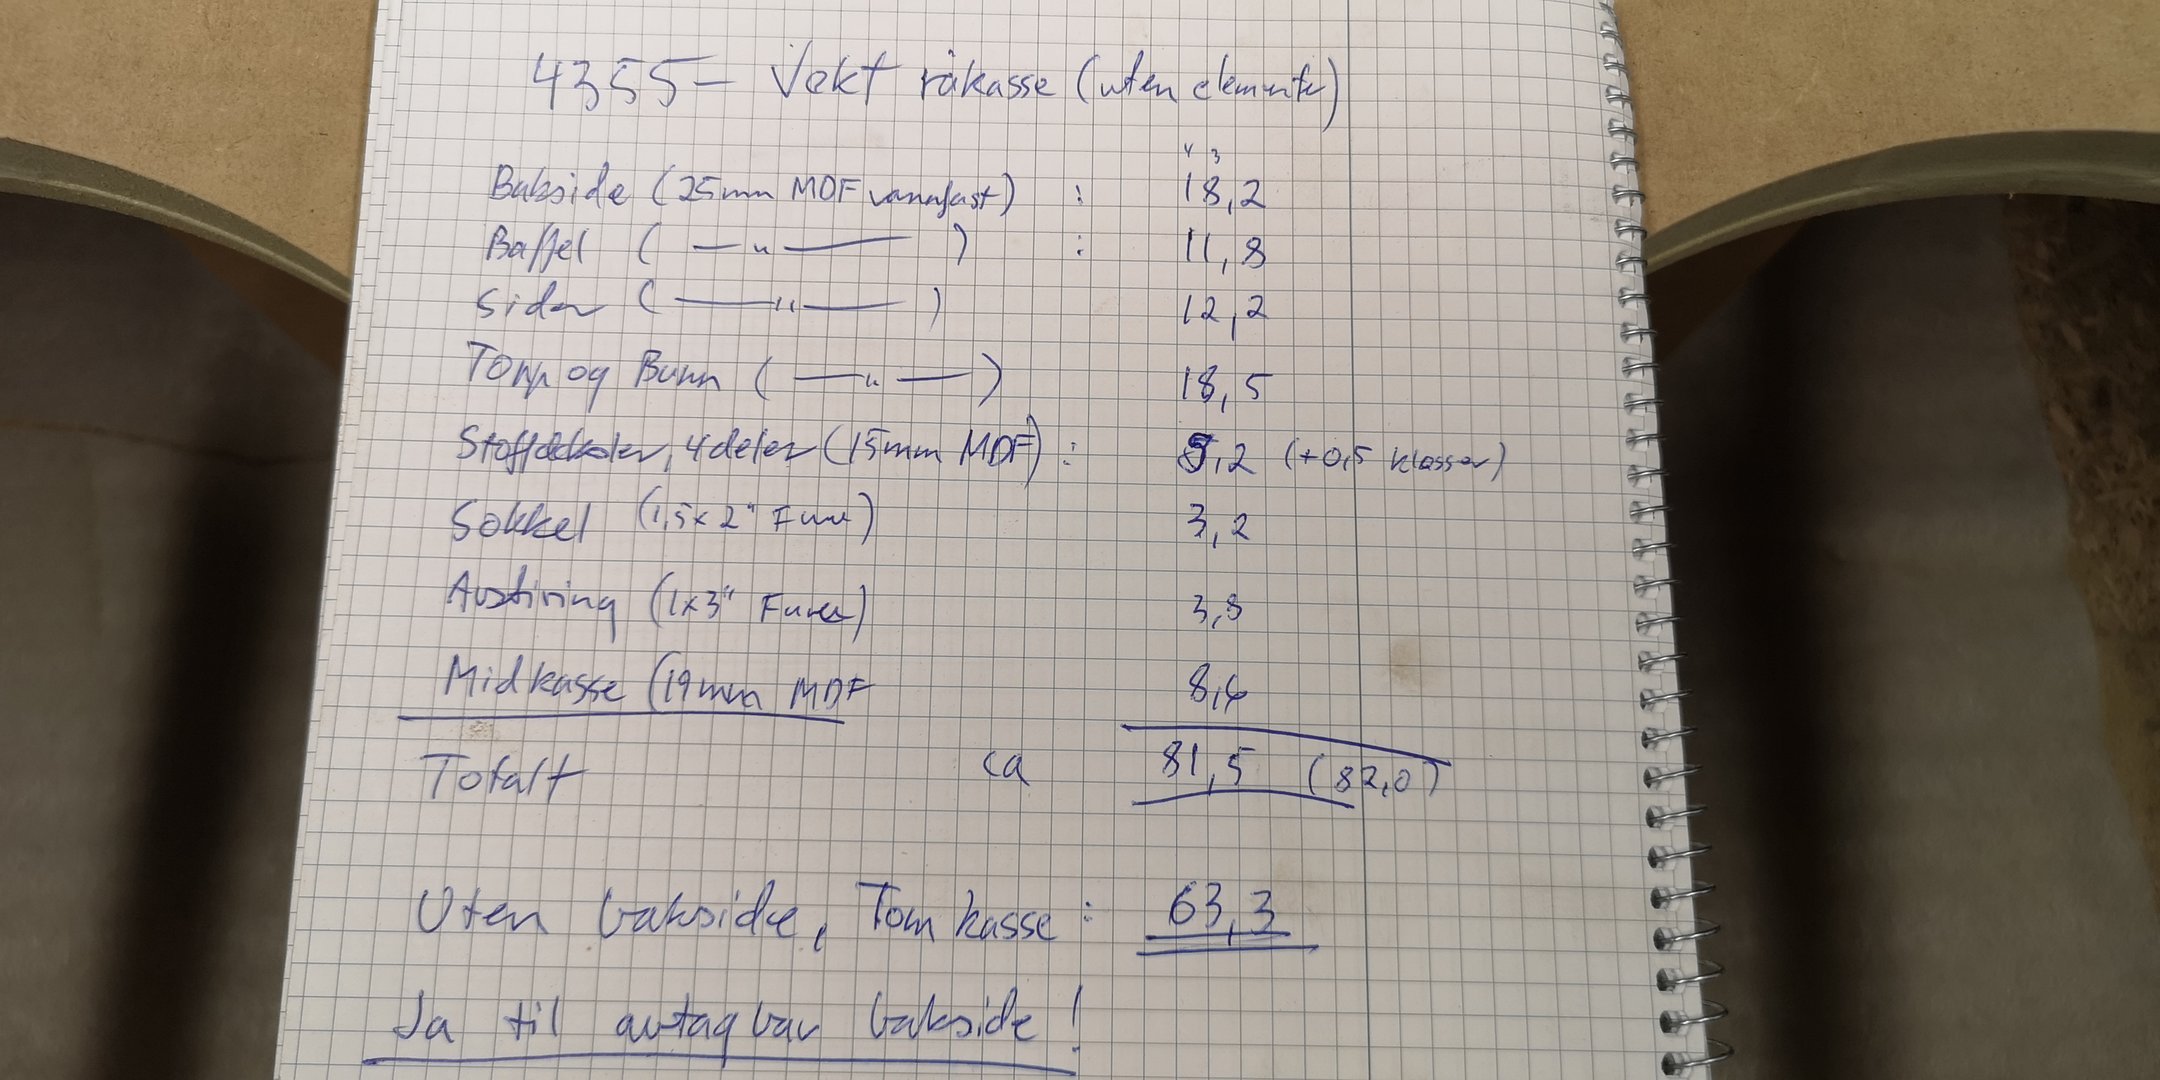 4355 – Vekt råkasse (uten elementer)
4 3
Bakside (25mm MDF vannfast) : 18,2
Baffel ( —"— ) : 11,8
Sider ( —"— ) 12,2
Topp og Bunn ( —"— ) 18,5
Stoffdeksler, 4 deler (15mm MDF) : 5,2 (+0,5 klosser)
Sokkel (1,5x2" Furu) 3,2
Avstiving (1x3" Furu) 3,8
Midkasse (19mm MDF 8,6
Totalt ca 81,5 (82,0)
Uten bakside, Tom kasse : 63,3
Ja til avtagbar bakside!